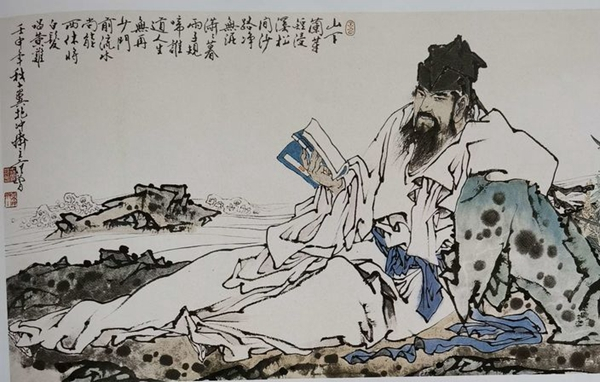 山下
蘭芽
短浸
溪松
間沙
路净
無泥
瀟々暮
雨子規
啼誰
道人生
無再
少門
前流水
尚能
西休將
白髮
唱黃雞
壬申年秋十翼抱冲齋主范曾